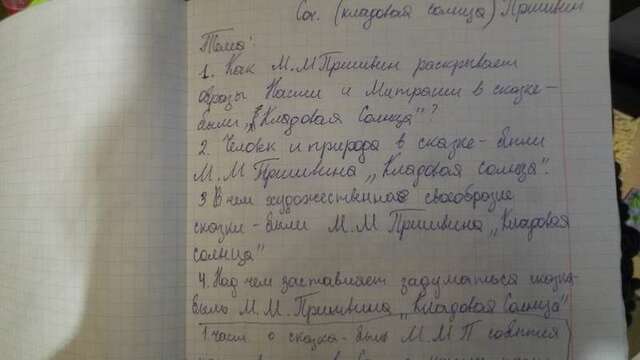 Соч. (кладовая солнца) Пришвин
Тема:
1. Как М.М Пришвин раскрывает
образы Насти и Митраши в сказке-
были "Кладовая Солнца"?
2. Человек и природа в сказке-были
М.М Пришвина "Кладовая солнца".
3 В чем художественная своеобразие
сказки-были М.М Пришвина "Кладовая
солнца"
4. Над чем заставляет задуматься сказка-
быль М.М. Пришвина "Кладовая Солнца"
1 часть о сказка-быль М.М П